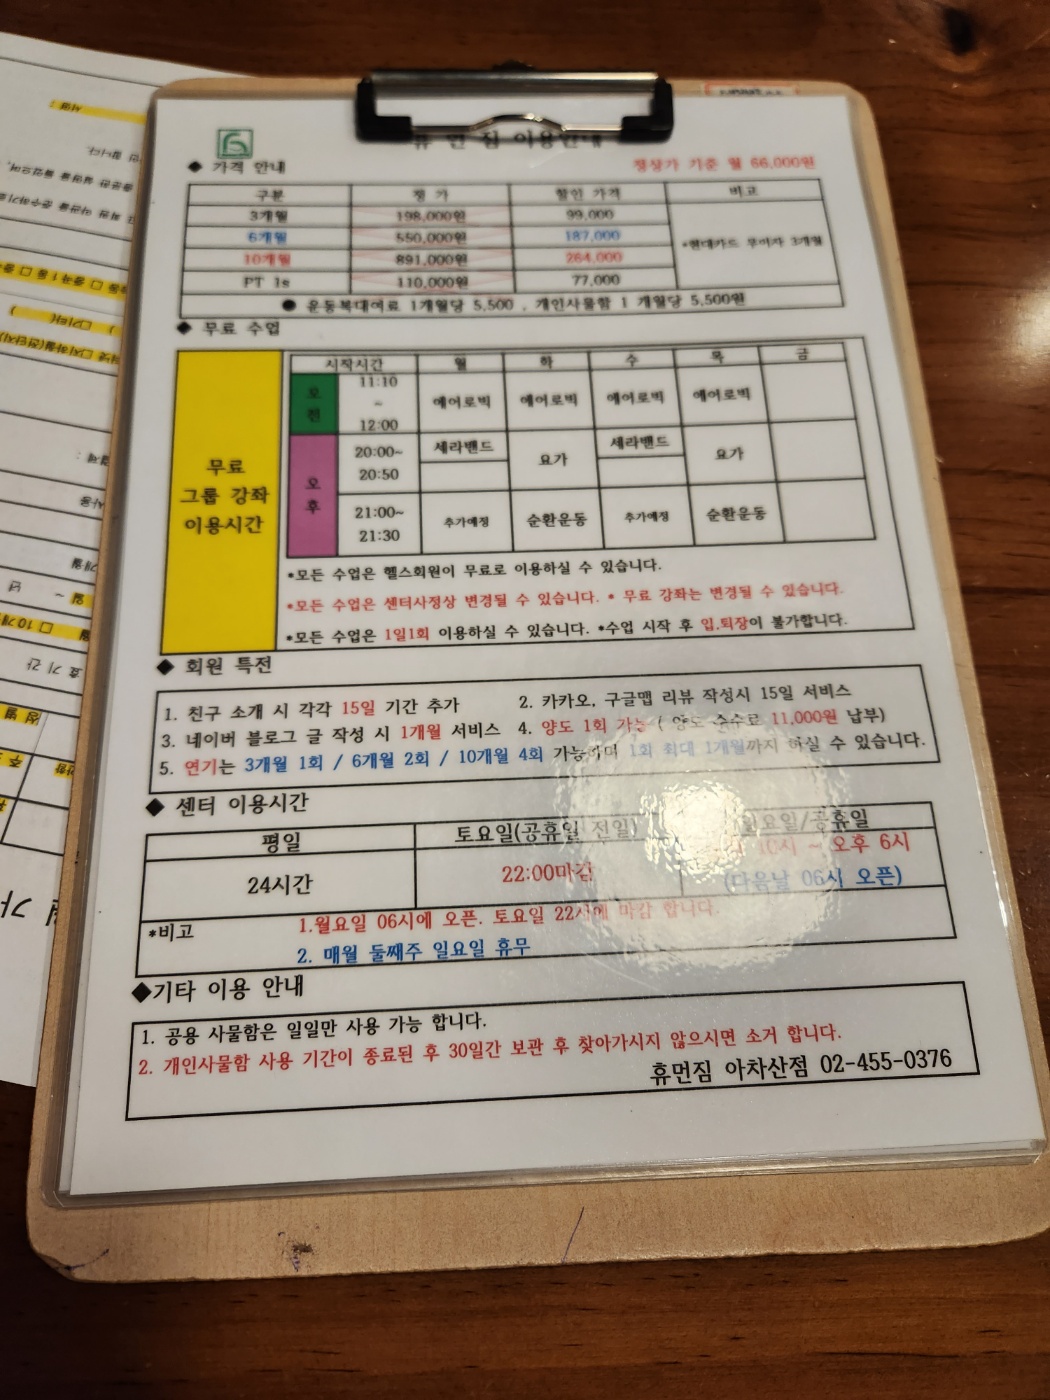 휴먼짐 이용안내
◆ 가격 안내 정상가 기준 월 66,000원
구분 정 가 할인 가격 비고
3개월 198,000원 99,000
6개월 550,000원 187,000 *현대카드 무이자 3개월
10개월 891,000원 264,000
PT 1s 110,000원 77,000
● 운동복대여료 1개월당 5,500 , 개인사물함 1 개월당 5,500원
◆ 무료 수업
무료
그룹 강좌
이용시간
시작시간 월 화 수 목 금
오전 11:10 ~ 12:00 에어로빅 에어로빅 에어로빅 에어로빅
오후 20:00~ 20:50 세라밴드 요가 세라밴드 요가
21:00~ 21:30 추가예정 순환운동 추가예정 순환운동
*모든 수업은 헬스회원이 무료로 이용하실 수 있습니다.
*모든 수업은 센터사정상 변경될 수 있습니다. * 무료 강좌는 변경될 수 있습니다.
*모든 수업은 1일1회 이용하실 수 있습니다. *수업 시작 후 입,퇴장이 불가합니다.
◆ 회원 특전
1. 친구 소개 시 각각 15일 기간 추가 2. 카카오, 구글맵 리뷰 작성시 15일 서비스
3. 네이버 블로그 글 작성 시 1개월 서비스 4. 양도 1회 가능 ( 양도 수수료 11,000원 납부)
5. 연기는 3개월 1회 / 6개월 2회 / 10개월 4회 가능하며 1회 최대 1개월까지 하실 수 있습니다.
◆ 센터 이용시간
평일 토요일(공휴일 전일) 일요일/공휴일
24시간 22:00마감 10시 ~ 오후 6시
(다음날 06시 오픈)
*비고 1.월요일 06시에 오픈. 토요일 22시에 마감 합니다.
2. 매월 둘째주 일요일 휴무
◆기타 이용 안내
1. 공용 사물함은 일일만 사용 가능 합니다.
2. 개인사물함 사용 기간이 종료된 후 30일간 보관 후 찾아가시지 않으시면 소거 합니다.
휴먼짐 아차산점 02-455-0376